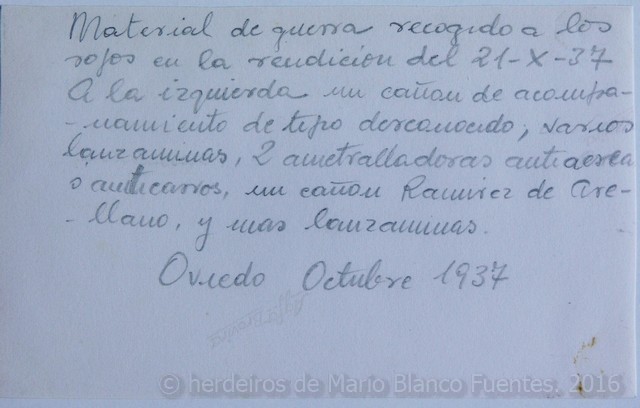 Material de guerra recogido a los
rojos en la rendicion del 21-X-37
A la izquierda un cañon de acompa-
-ñamiento de tipo desconocido, varios
lanzaminas, 2 ametralladoras antiaereas
o anticarros, un cañon Ramirez de Are-
-llano, y mas lanzaminas.
Oviedo Octubre 1937
© herdeiros de Mario Blanco Fuentes. 2016